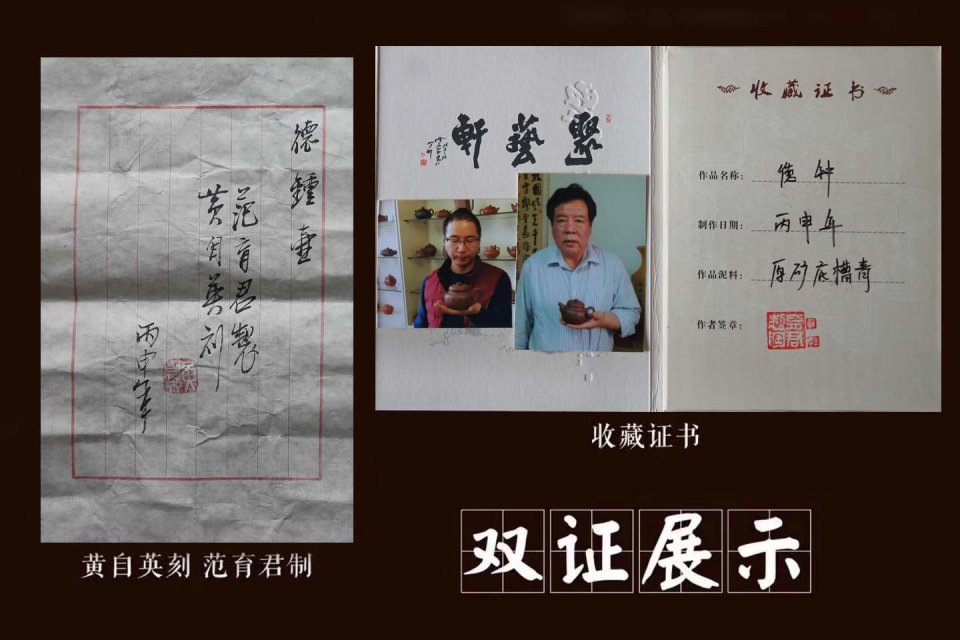 德鐘壺
范育君製
黄自英刻
丙申年
黄自英刻 范育君制
聚藝軒
收藏证书
作品名称: 德钟
制作日期: 丙申年
作品泥料: 原矿底槽青
作者签章:
收藏证书
双证展示